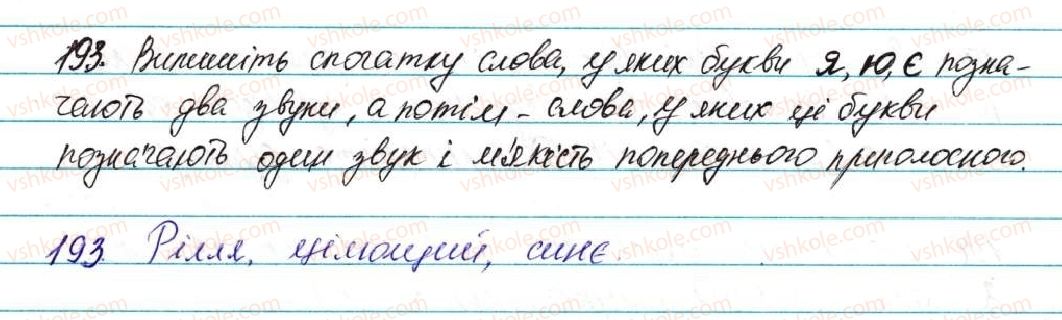 193. Випишіть спочатку слова, у яких букви я, ю, є позна-
чають два звуки, а потім - слова, у яких ці букви
позначають один звук і м'якість попереднього приголосного.
193 Рілля, цілющий, синє.